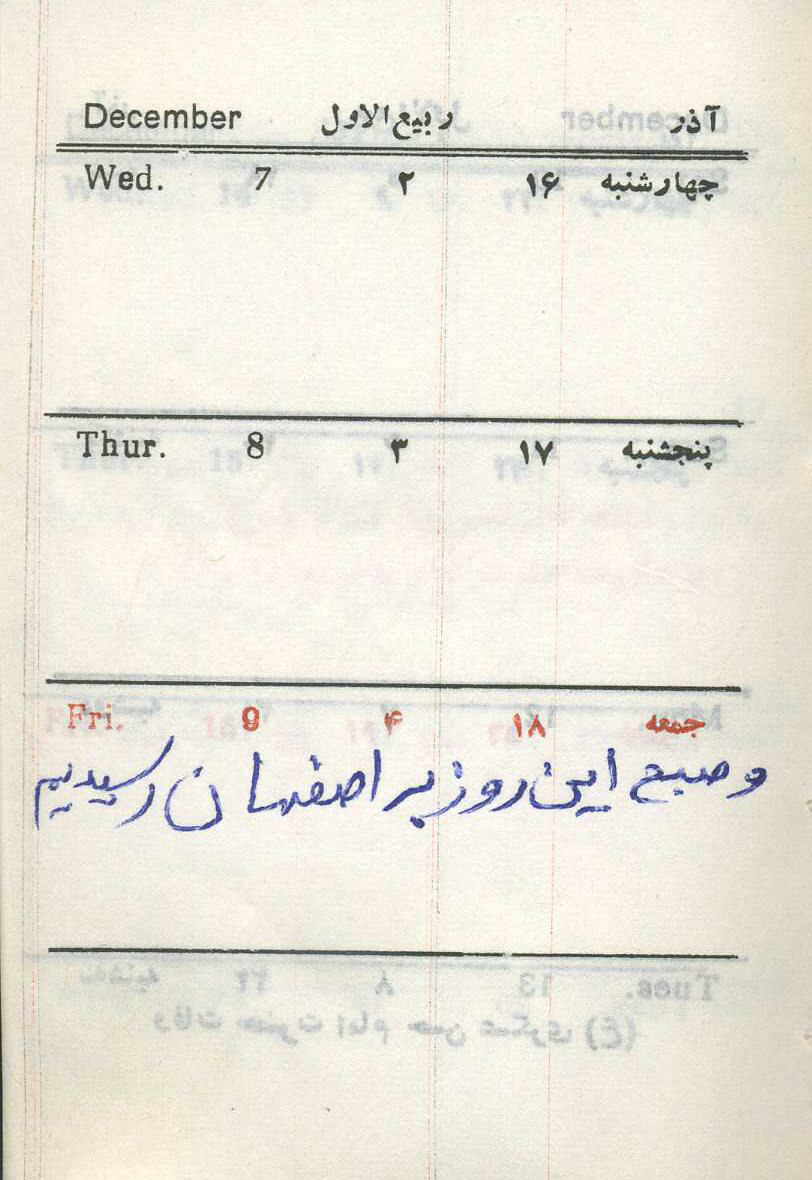 آذر ربیع الاول December
چهارشنبه ۱۶ ۲ 7 Wed.
پنجشنبه ۱۷ ۳ 8 Thur.
جمعه ۱۸ ۴ 9 Fri.
و صبح این روز بر اصفهان رسیدیم